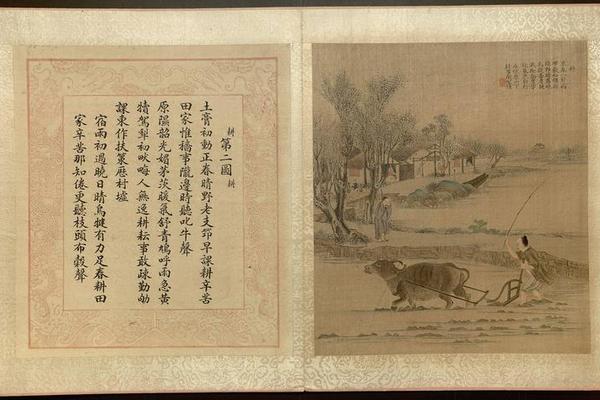 耕 第二圖 耕
土膏初動正春晴野老支筇早課耕辛苦
田家惟穡事隴邊時聽叱牛聲
原隰韶光媚茅茨暖氣舒青鳩呼雨急黃
犢駕犁初畎畮人無逸耕耘事敢疎勤劬
課東作扶策歷村墟
宿雨初過曉日晴烏犍有力足春耕田
家辛苦那知倦更聽枝頭布穀聲